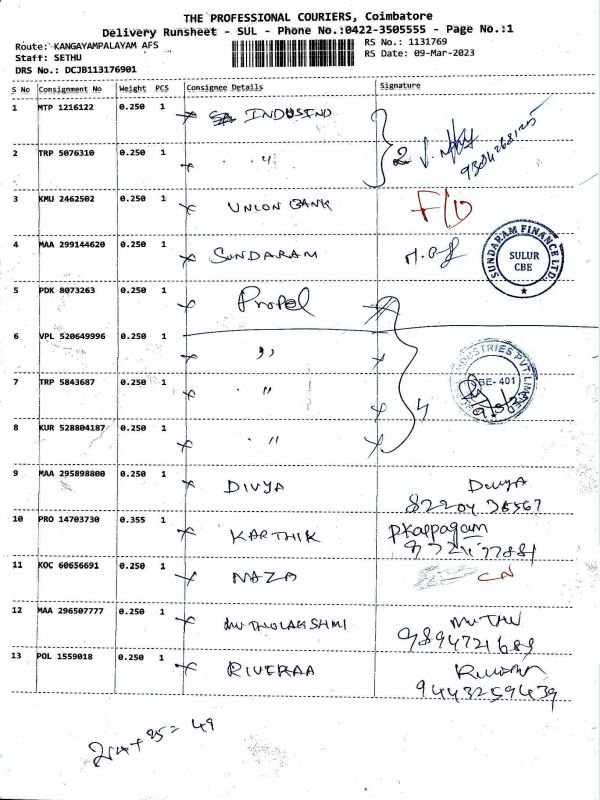 THE PROFESSIONAL COURIERS, Coimbatore
Delivery Runsheet - SUL - Phone No.:0422-3505555 - Page No.:1
Route: KANGAYAMPALAYAM AFS
RS No.: 1131769
Staff: SETHU
RS Date: 09-Mar-2023
DRS No.: DCJB113176901
S No Consignment No Weight PCS Consignee Details Signature
1 MTP 1216122 0.250 1 INDUSIND
2 TRP 5076310 0.250 1 " 2
3 KMU 2462502 0.250 1 UNION BANK F/D
4 MAA 299144620 0.250 1 SUNDARAM
SUNDARAM FINANCE LTD.
SULUR
CBE
5 PDK 8073263 0.250 1 Propel
6 VPL 520649996 0.250 1 "
7 TRP 5843687 0.250 1 " 4
INDUSTRIES PVT. LIMITED
8 KUR 528804187 0.250 1 "
9 MAA 295898800 0.250 1 DIVYA Divya
10 PRO 14703730 0.355 1 KARTHIK PKarpagam
11 KOC 60656691 0.250 1 NAZA CN
12 MAA 296507777 0.250 1 MUTHULAKSHMI MUTHU
9894721689
13 POL 1559018 0.250 1 RIVERAA
9443259439
24+25=49